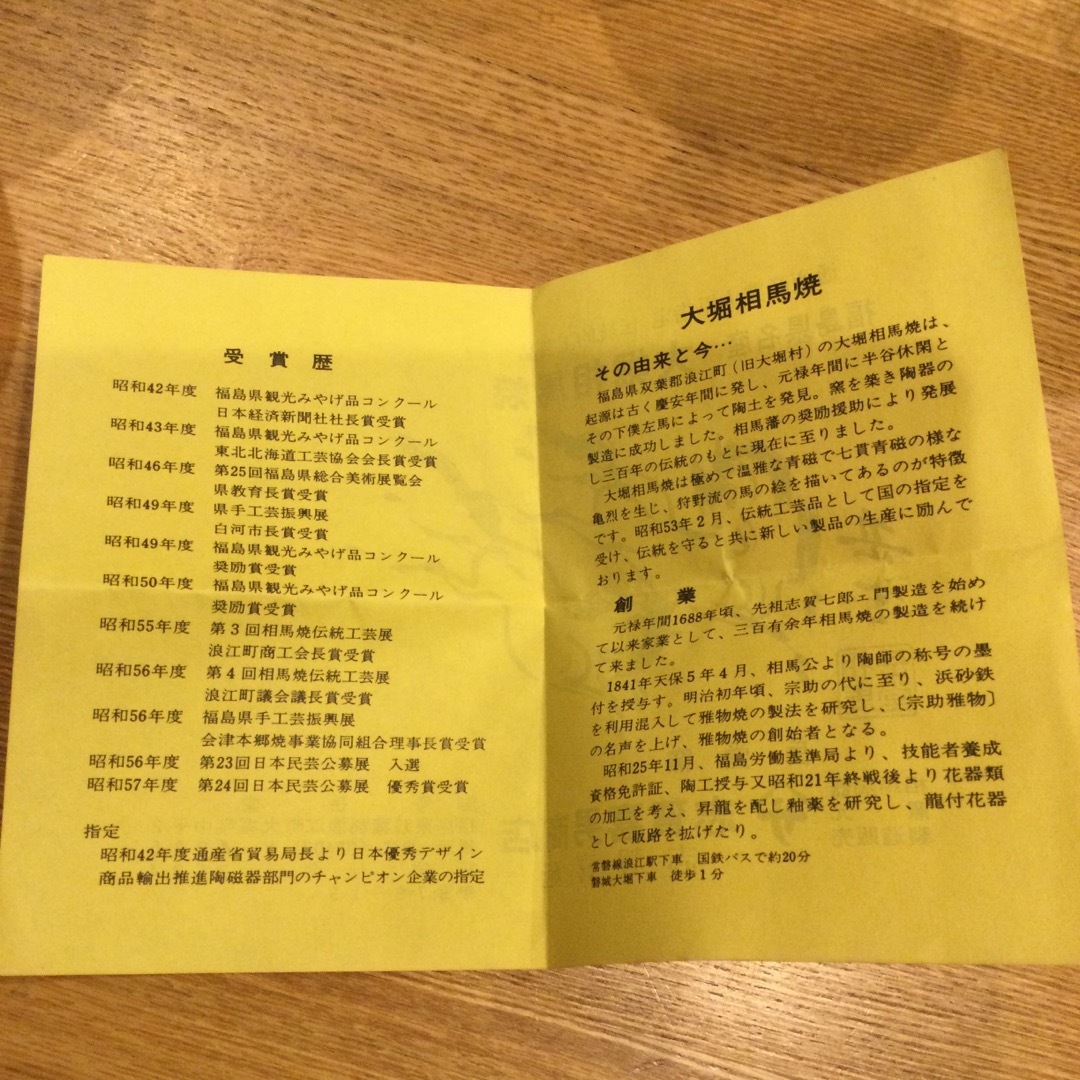 受賞歴
昭和42年度 福島県観光みやげ品コンクール
日本経済新聞社社長賞受賞
昭和43年度 福島県観光みやげ品コンクール
東北北海道工芸協会会長賞受賞
昭和46年度 第25回福島県総合美術展覧会
県教育長賞受賞
昭和49年度 県手工芸振興展
白河市長賞受賞
昭和49年度 福島県観光みやげ品コンクール
奨励賞受賞
昭和50年度 福島県観光みやげ品コンクール
奨励賞受賞
昭和55年度 第3回相馬焼伝統工芸展
浪江町商工会長賞受賞
昭和56年度 第4回相馬焼伝統工芸展
浪江町議会議長賞受賞
昭和56年度 福島県手工芸振興展
会津本郷焼事業協同組合理事長賞受賞
昭和56年度 第23回日本民芸公募展 入選
昭和57年度 第24回日本民芸公募展 優秀賞受賞
指定
昭和42年度通産省貿易局長より日本優秀デザイン
商品輸出推進陶磁器部門のチャンピオン企業の指定
大堀相馬焼
その由来と今…
福島県双葉郡浪江町(旧大堀村)の大堀相馬焼は、
起源は古く慶安年間に発し、元禄年間に半谷休閑と
その下僕左馬によって陶土を発見。窯を築き陶器の
製造に成功しました。相馬藩の奨励援助により発展
し三百年の伝統のもとに現在に至りました。
大堀相馬焼は極めて温雅な青磁で七貫青磁の様な
亀烈を生じ、狩野流の馬の絵を描いてあるのが特徴
です。昭和53年2月、伝統工芸品として国の指定を
受け、伝統を守ると共に新しい製品の生産に励んで
おります。
創業
元禄年間1688年頃、先祖志賀七郎ェ門製造を始め
て以来家業として、三百有余年相馬焼の製造を続け
て来ました。
1841年天保5年4月、相馬公より陶師の称号の墨
付を授与す。明治初年頃、宗助の代に至り、浜砂鉄
を利用混入して雅物焼の製法を研究し、〔宗助雅物〕
の名声を上げ、雅物焼の創始者となる。
昭和25年11月、福島労働基準局より、技能者養成
資格免許証、陶工授与又昭和21年終戦後より花器類
の加工を考え、昇龍を配し釉薬を研究し、龍付花器
として販路を拡げたり。
常磐線浪江駅下車 国鉄バスで約20分
磐城大堀下車 徒歩1分